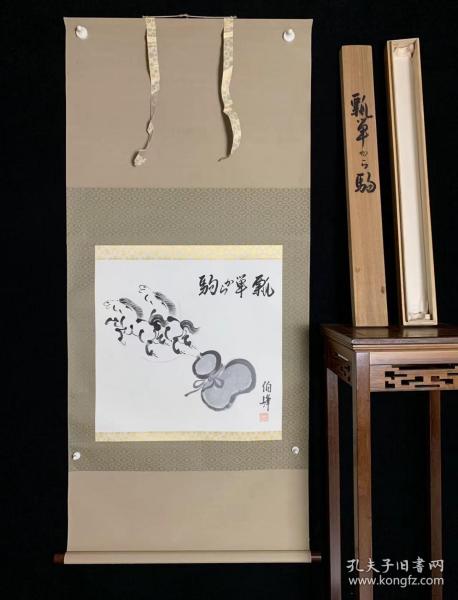 瓢単から駒
伯
瓢単から駒
孔夫子旧书网
www.kongfz.com